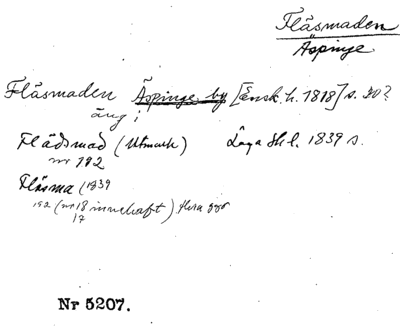 Fläsmaden
Äspinge
Fläsmaden Äspinge by [Ensk. h. 1818] s. 20?
äng i
Flädsmad (Utmark) Laga Sk. 1839 s.
nr 192
Fläsma (1839
192 (nr 18 innehaft) flera ggr
17
Nr 5207.